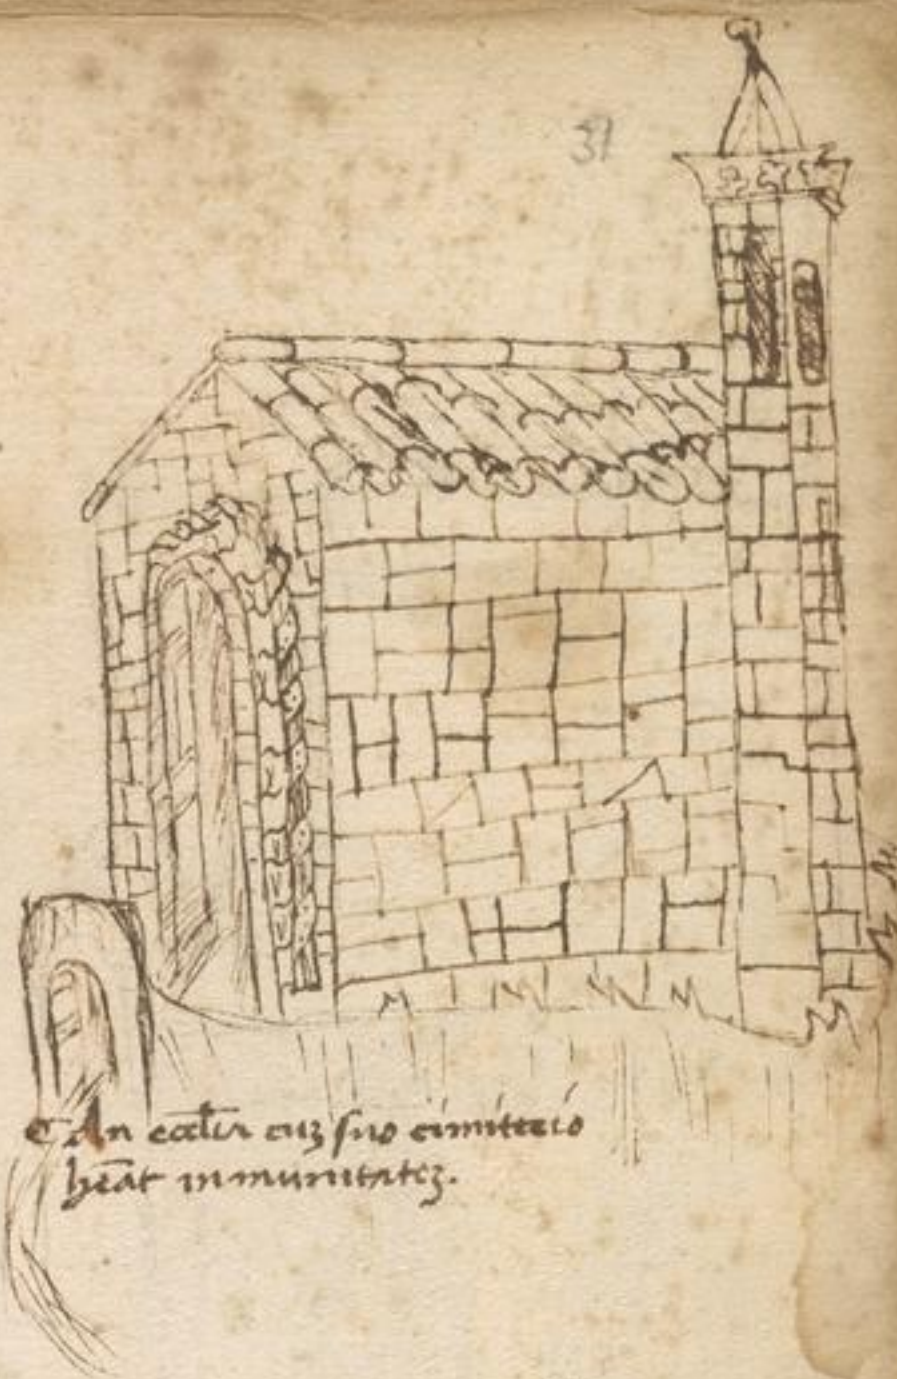 37
An ecclīa cuȝ suo cimiterio
hēāt inmunitateȝ.